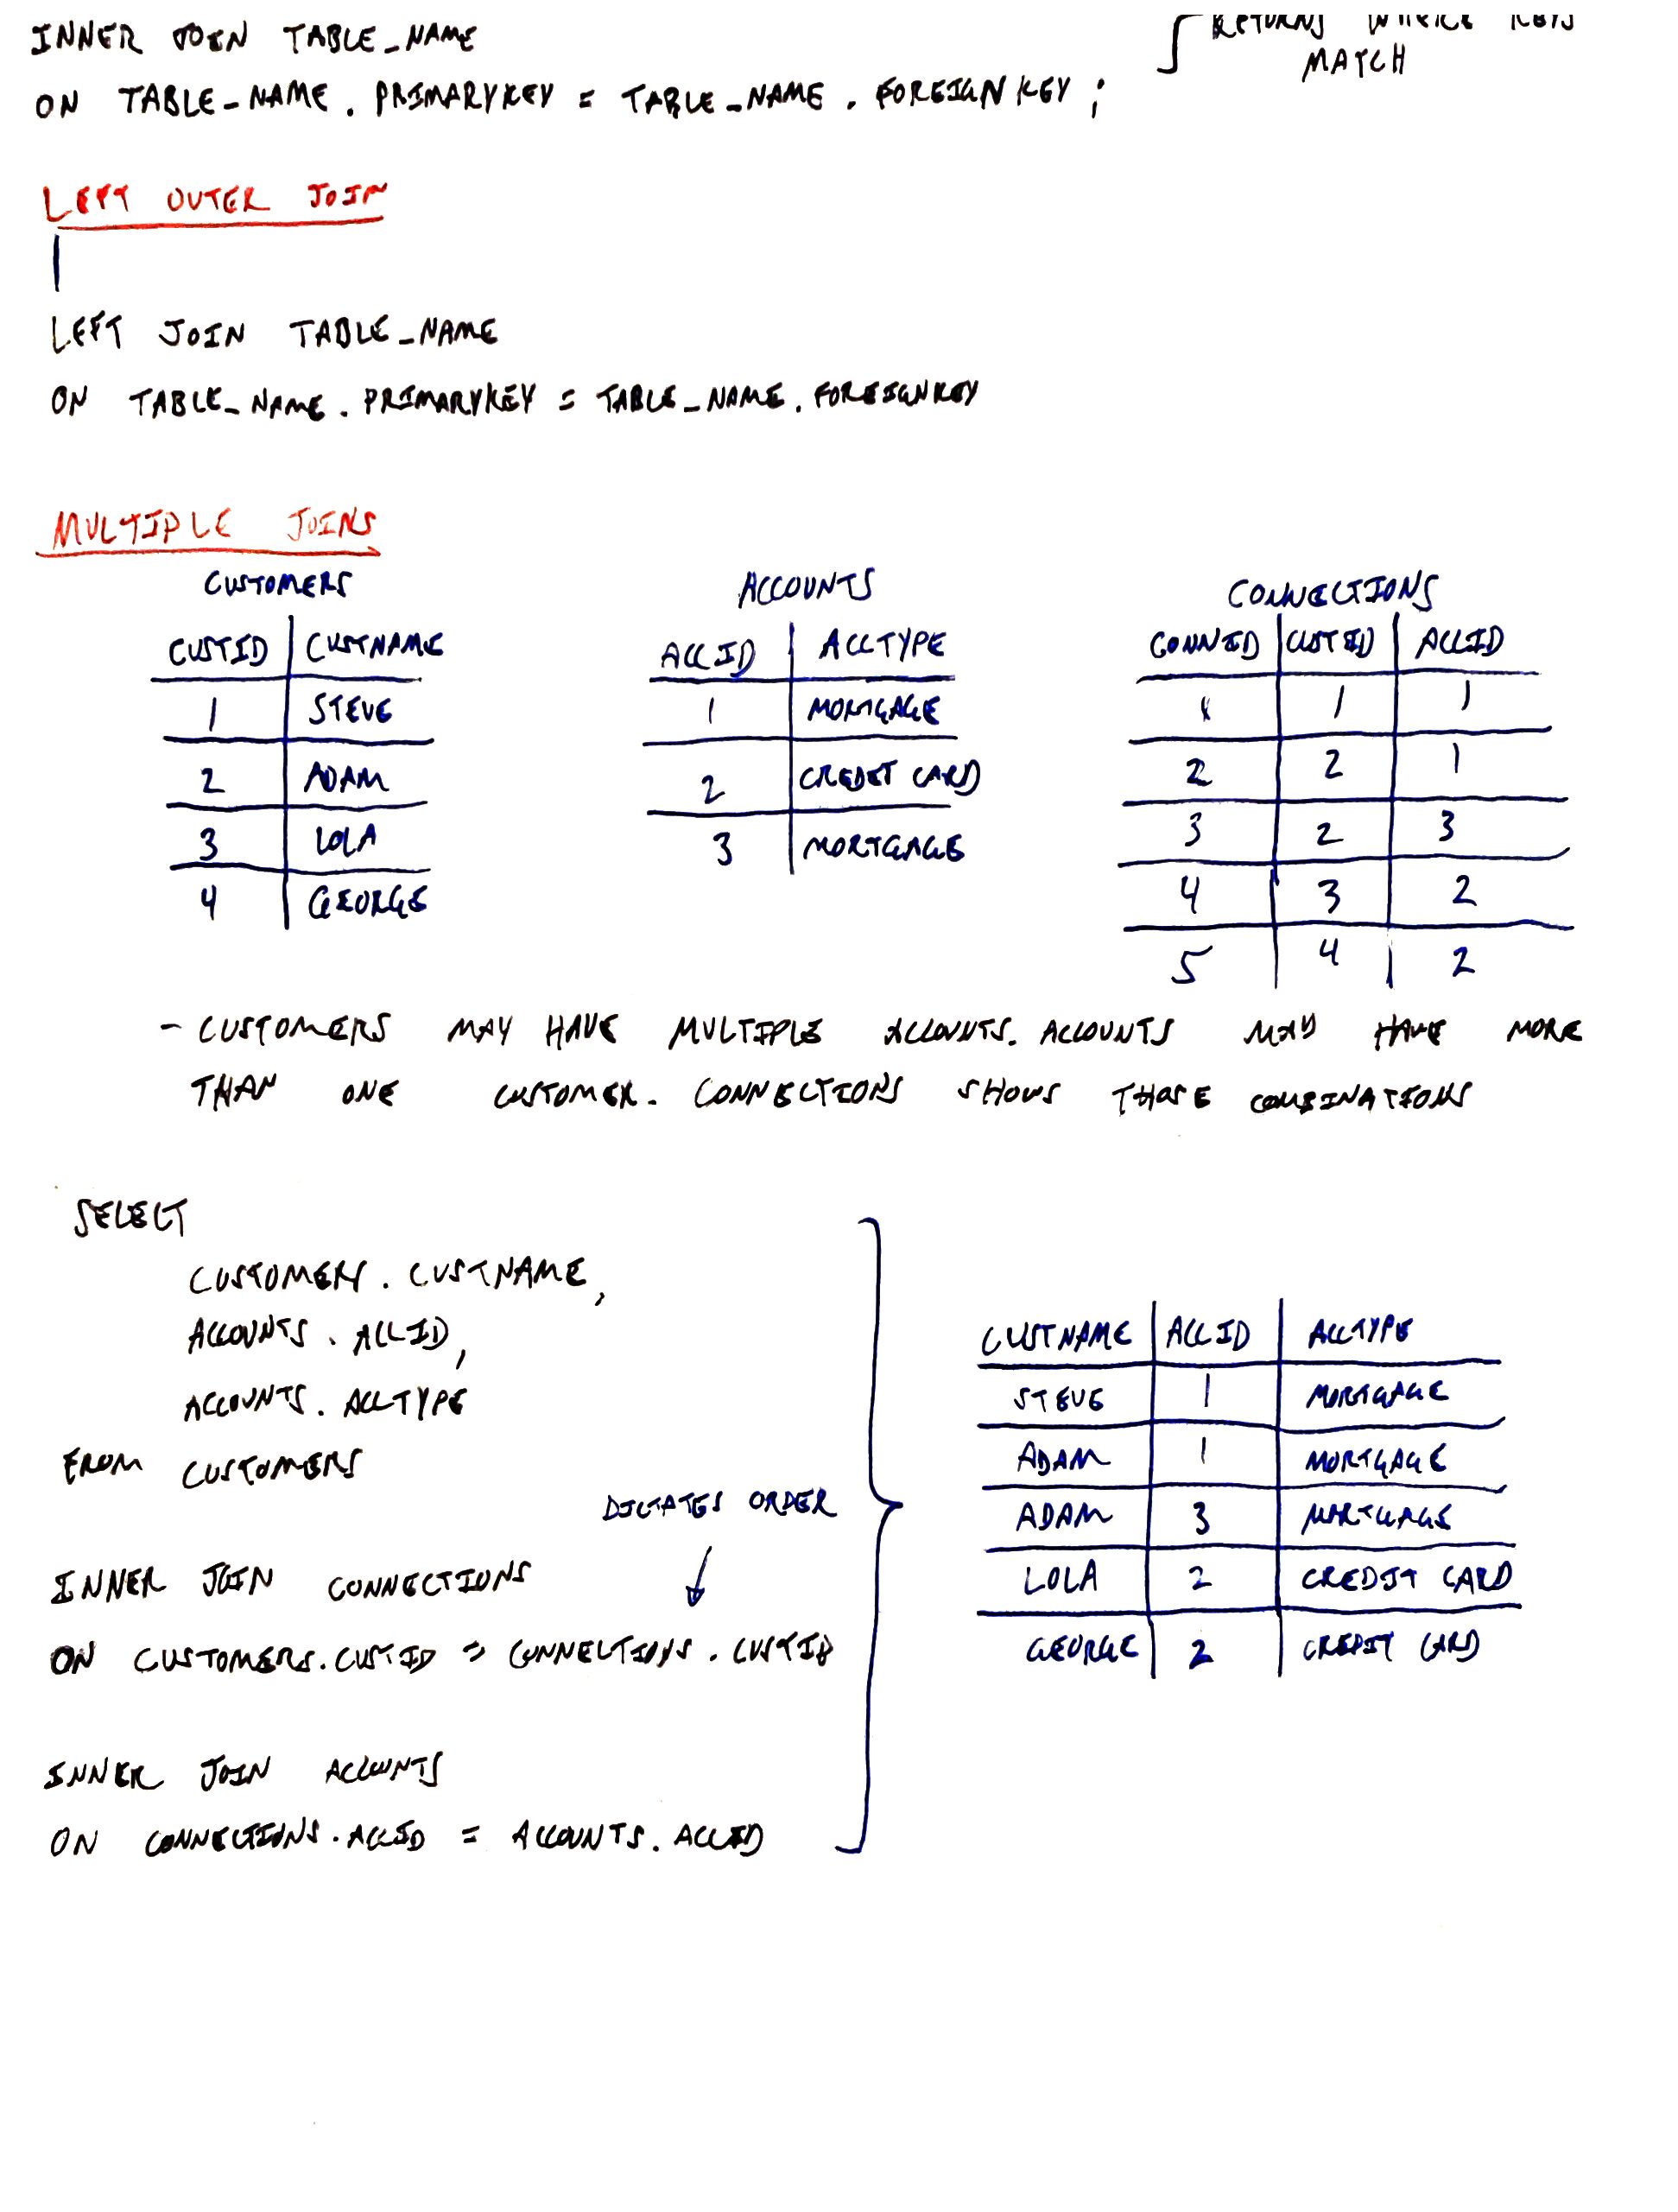 INNER JOIN TABLE_NAME
RETURNS WHERE KEYS
MATCH
ON TABLE_NAME. PRIMARYKEY = TABLE_NAME. FOREIGN KEY;
LEFT OUTER JOIN
LEFT JOIN TABLE_NAME
ON TABLE_NAME. PRIMARYKEY = TABLE_NAME. FOREIGNKEY
MULTIPLE JOINS
CUSTOMERS
CUSTID CUSTNAME
1 STEVE
2 ADAM
3 LOLA
4 GEORGE
ACCOUNTS
ACCID ACCTYPE
1 MORTGAGE
2 CREDIT CARD
3 MORTGAGE
CONNECTIONS
CONNID CUSTID ACCID
1 1 1
2 2 1
3 2 3
4 3 2
5 4 2
- CUSTOMERS MAY HAVE MULTIPLE ACCOUNTS. ACCOUNTS MAY HAVE MORE
THAN ONE CUSTOMER. CONNECTIONS SHOWS THOSE COMBINATIONS
SELECT
CUSTOMERS. CUSTNAME,
ACCOUNTS. ACCID,
ACCOUNTS. ACCTYPE
FROM CUSTOMERS
DICTATES ORDER
INNER JOIN CONNECTIONS
ON CUSTOMERS.CUSTID = CONNECTIONS. CUSTID
INNER JOIN ACCOUNTS
ON CONNECTIONS.ACCID = ACCOUNTS. ACCID
CUSTNAME ACCID ACCTYPE
STEVE 1 MORTGAGE
ADAM 1 MORTGAGE
ADAM 3 MORTGAGE
LOLA 2 CREDIT CARD
GEORGE 2 CREDIT CARD